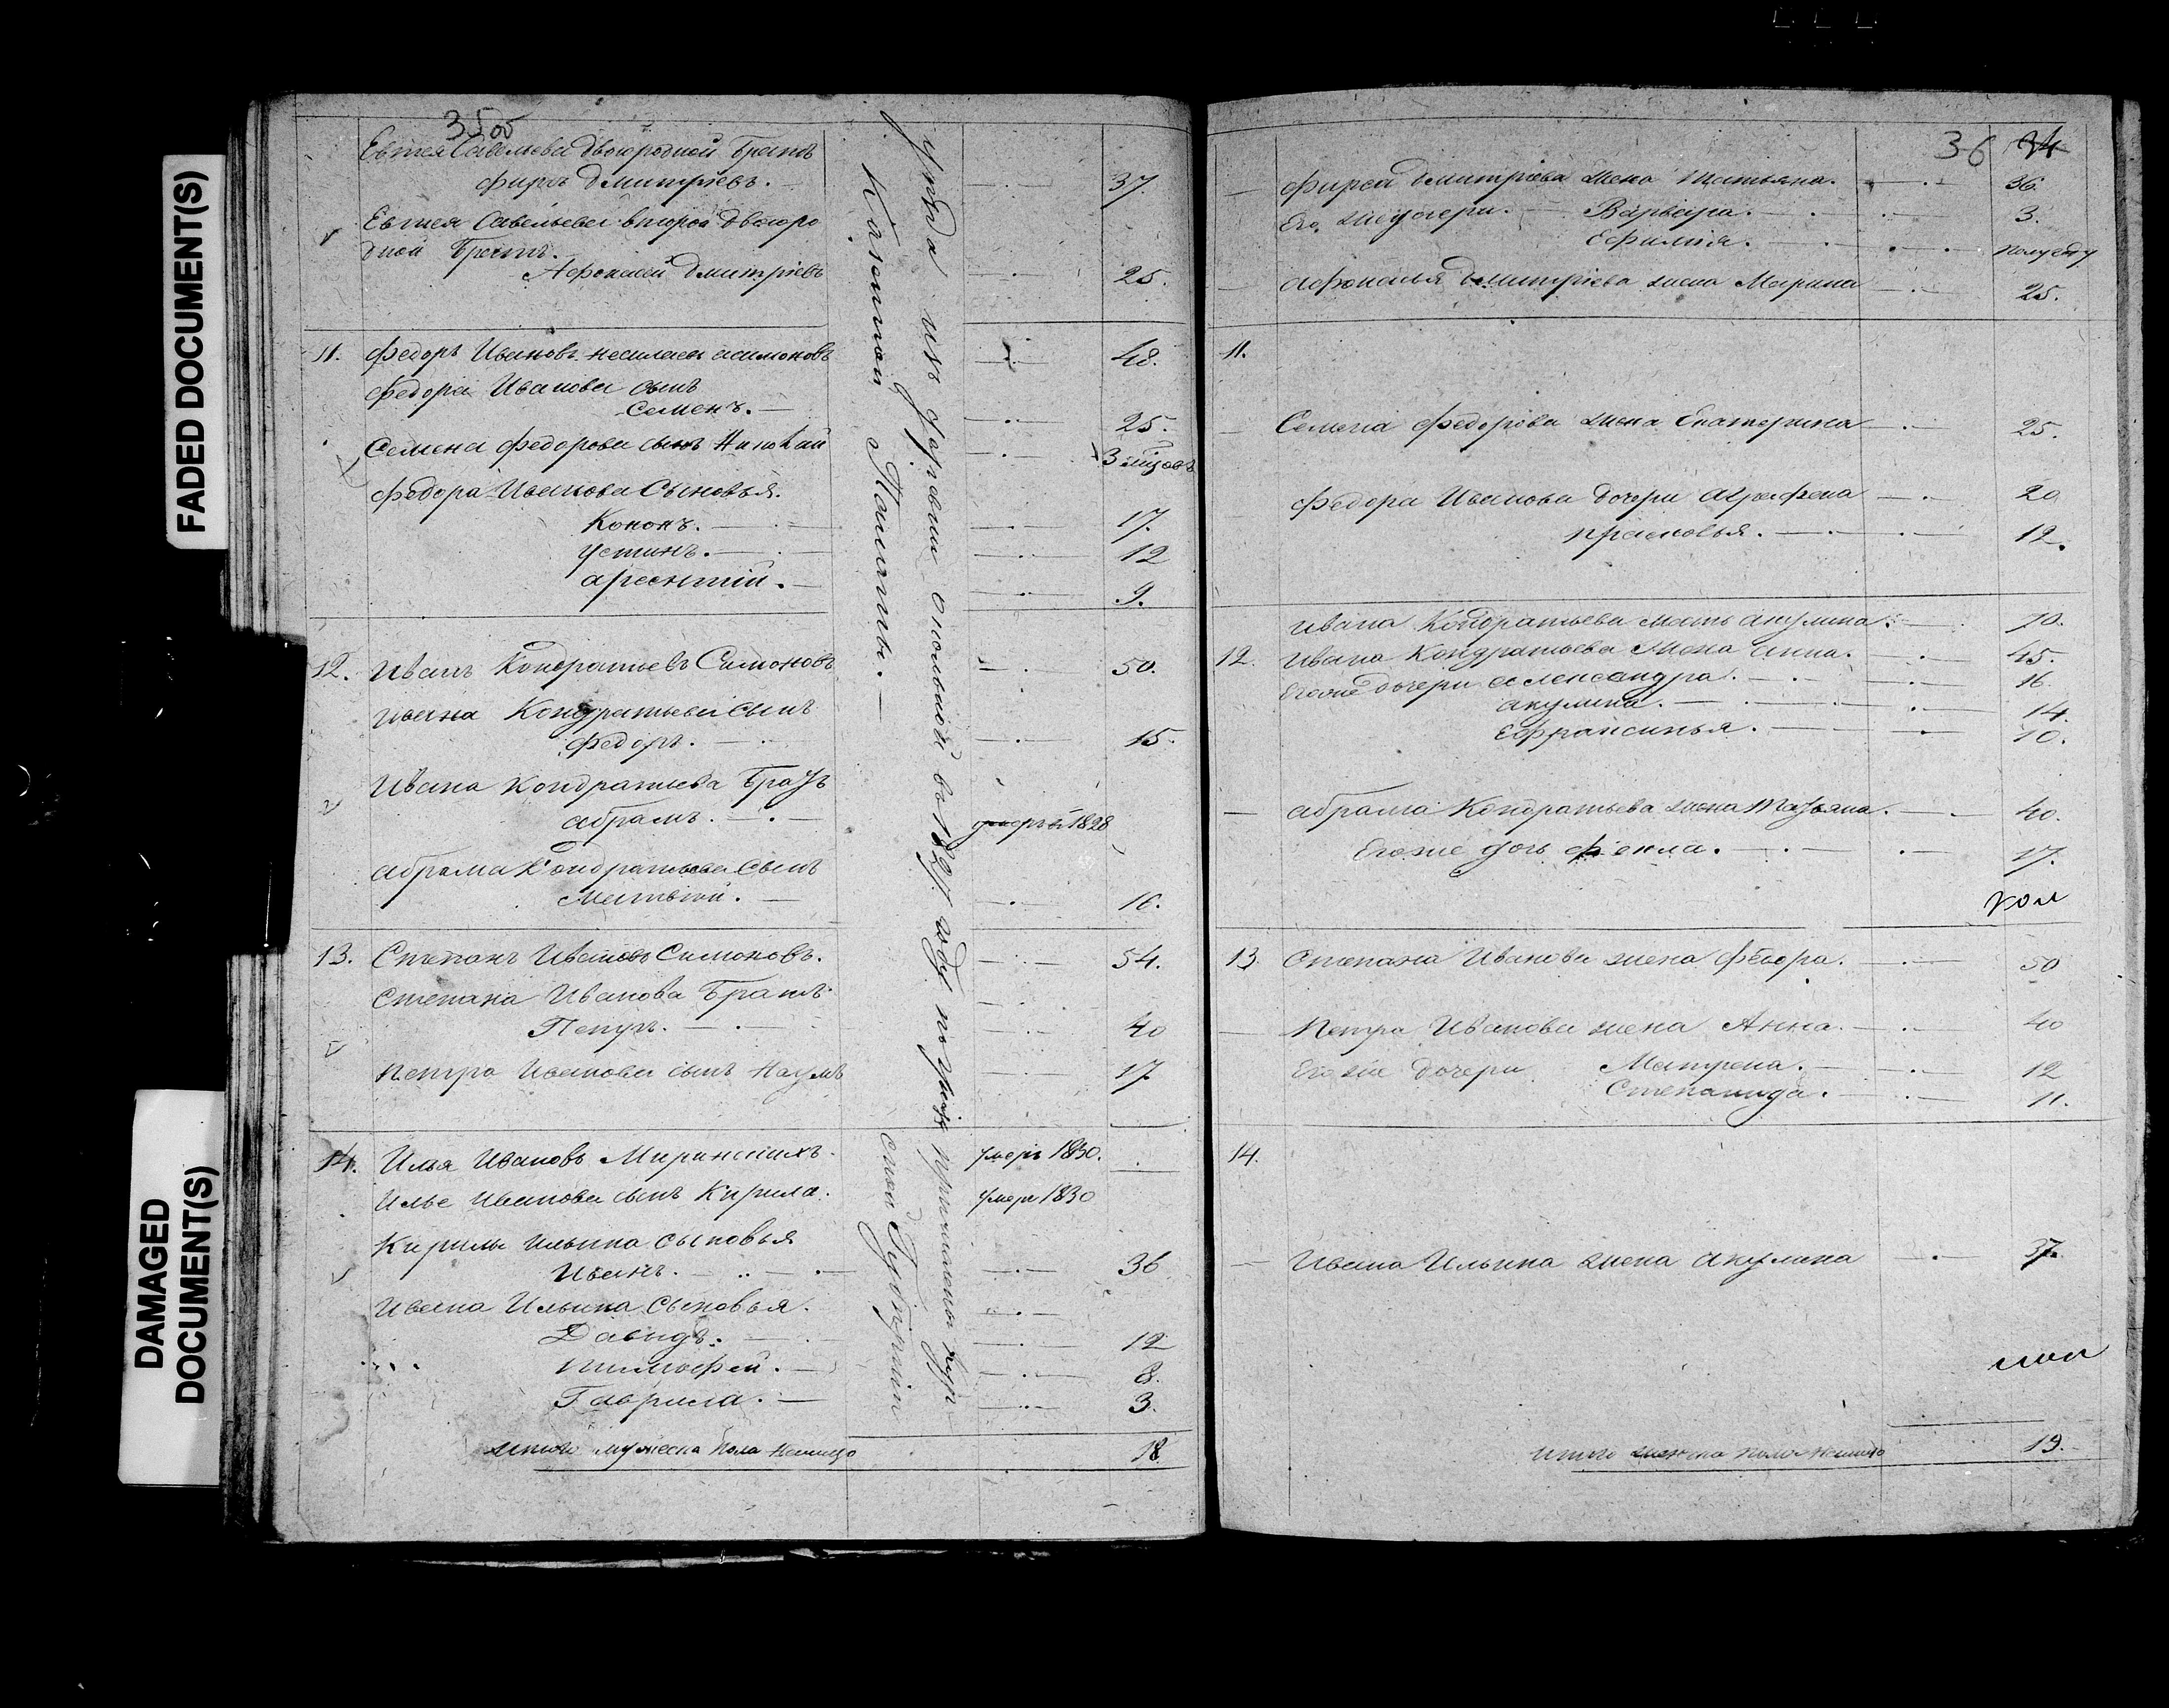 FADED DOCUMENT(S)
DAMAGED
DOCUMENT(S)
35об
Евтея Савельева двоюродной братъ
фирсъ дмитріевъ. 37.
Евтея Савельева второй двоюро
дной братъ.
Афонасей дмитріевъ 25.
11. федоръ Ивановъ 48.
федора Иванова сынъ
семенъ. 25.
Семена федорова сынъ Николай 3
федора Иванова Сыновья.
Кононъ. 17.
Устинъ. 12
арсентій. 9.
12. Иванъ Кондратьевъ Симоновъ 50.
Ивана Кондратьева сынъ
федоръ. 15.
Ивана Кондратьева братъ
абрамъ. 1828
абрама Кондратьева сынъ
матвей. 16.
13. Степанъ Ивановъ Симоновъ. 54.
Степана Иванова братъ
Петръ. 40
петра Иванова сынъ Наумъ 17
14. Илья Ивановъ умеръ 1830.
Илье Иванова сынъ Кирила. умеръ 1830
Кирилы Ильина сыновья
Иванъ. 36
Ивана Ильина Сыновья.
Давидъ. 12
тимофей. 8.
Гаврила. 3.
итого мужеска пола 18
въ 1827 году
Казенной Палаты.
36
фирса дмитріева жена татьяна. 36.
Его дочери. Варвара. 3.
Ефимия. полугоду
афонасья дмитріева жена Марина 25.
11.
Семена федорова жена Екатерина 25.
федора Иванова дочери аграфена 20
прасковья. 12.
Ивана Кондратьева мать акулина. 70.
12. Ивана Кондратьева жена анна. 45.
Егоже дочери александра. 16
акулина. 14.
Ефрансинья. 10.
абрама Кондратьева жена татьяна. 40.
Егоже дочь фекла. 17.
13. Степана Иванова жена федора. 50
петра Иванова жена Анна. 40
Егоже дочери Матрена. 12
Степанида. 11.
14.
Ивана Ильина жена акулина 37.
итого женска пола 19.